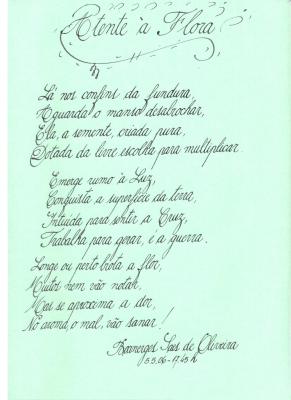 Atente à Flora
Lá nos confins da fundura,
Aguarda o manso desabrochar,
Ela, a semente, criada pura,
Dotada da livre escolha para multiplicar.
Emerge rumo à Luz,
Conquista a superfície da terra,
Intuída para sentir a Cruz,
Trabalha para gerar, é a guerra.
Longe ou perto brota a flor,
Muitos nem vão notar,
Mas se aproxima a dor,
No aroma, o mal, vão sanar!
Boanerges Saes de Oliveira
5.5.06 - 17,45 h